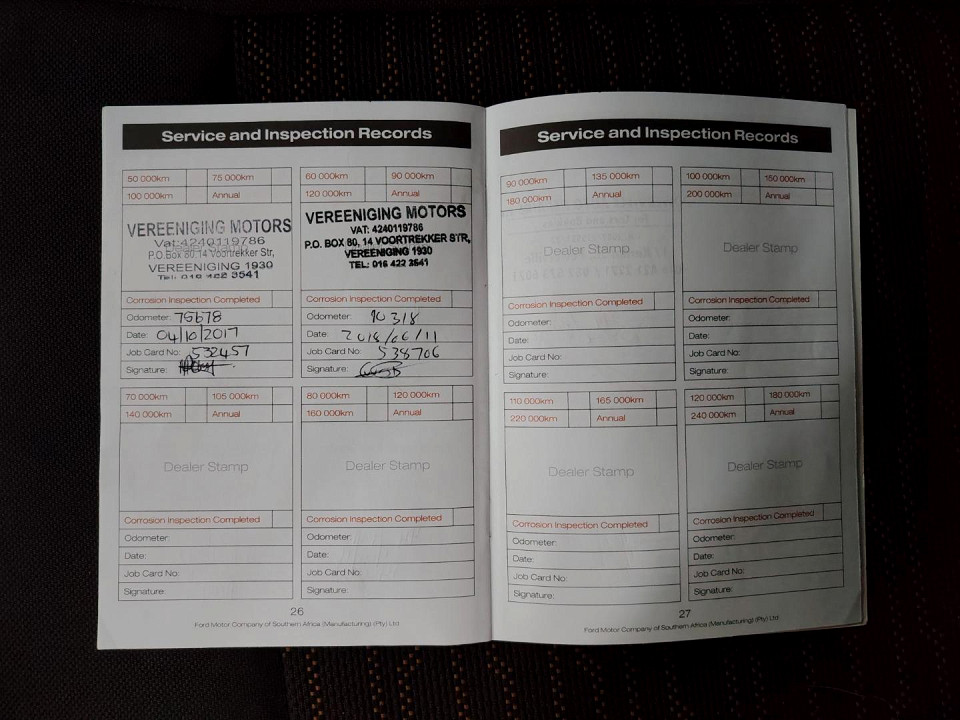 Service and Inspection Records
50 000km 75 000km
100 000km Annual
VEREENIGING MOTORS
Vat:4240119786
P.O.Box 80,14 Voortrekker Str,
VEREENIGING 1930
Tel: 016 422 3541
Corrosion Inspection Completed
Odometer: 75678
Date: 04/10/2017
Job Card No: 532457
Signature:
60 000km 90 000km
120 000km Annual
VEREENIGING MOTORS
VAT: 4240119786
P.O. BOX 80, 14 VOORTREKKER STR,
VEREENIGING 1930
TEL: 016 422 3541
Corrosion Inspection Completed
Odometer: 90318
Date: 2018/06/11
Job Card No: 538706
Signature:
70 000km 105 000km
140 000km Annual
Dealer Stamp
Corrosion Inspection Completed
Odometer:
Date:
Job Card No:
Signature:
80 000km 120 000km
160 000km Annual
Dealer Stamp
Corrosion Inspection Completed
Odometer:
Date:
Job Card No:
Signature:
26
Ford Motor Company of Southern Africa (Manufacturing) (Pty) Ltd
Service and Inspection Records
90 000km 135 000km
180 000km Annual
Dealer Stamp
Corrosion Inspection Completed
Odometer:
Date:
Job Card No:
Signature:
100 000km 150 000km
200 000km Annual
Dealer Stamp
Corrosion Inspection Completed
Odometer:
Date:
Job Card No:
Signature:
110 000km 165 000km
220 000km Annual
Dealer Stamp
Corrosion Inspection Completed
Odometer:
Date:
Job Card No:
Signature:
120 000km 180 000km
240 000km Annual
Dealer Stamp
Corrosion Inspection Completed
Odometer:
Date:
Job Card No:
Signature:
27
Ford Motor Company of Southern Africa (Manufacturing) (Pty) Ltd